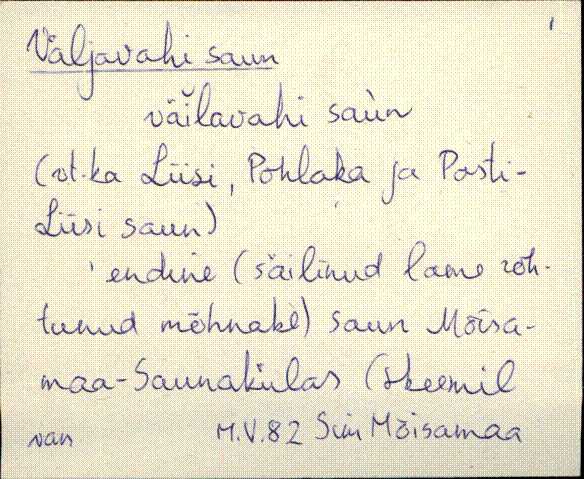 Väljavahi saun
väĭlavahi saùn
(vt. ka Liisi, Pohlaka ja Posti-
Liisi saun)
endine (säilinud lame roh-
tunud mõhnake) saun Mõisa-
maa-Saunakülas (skeemil
van M.V.82 Simi Mõisamaa